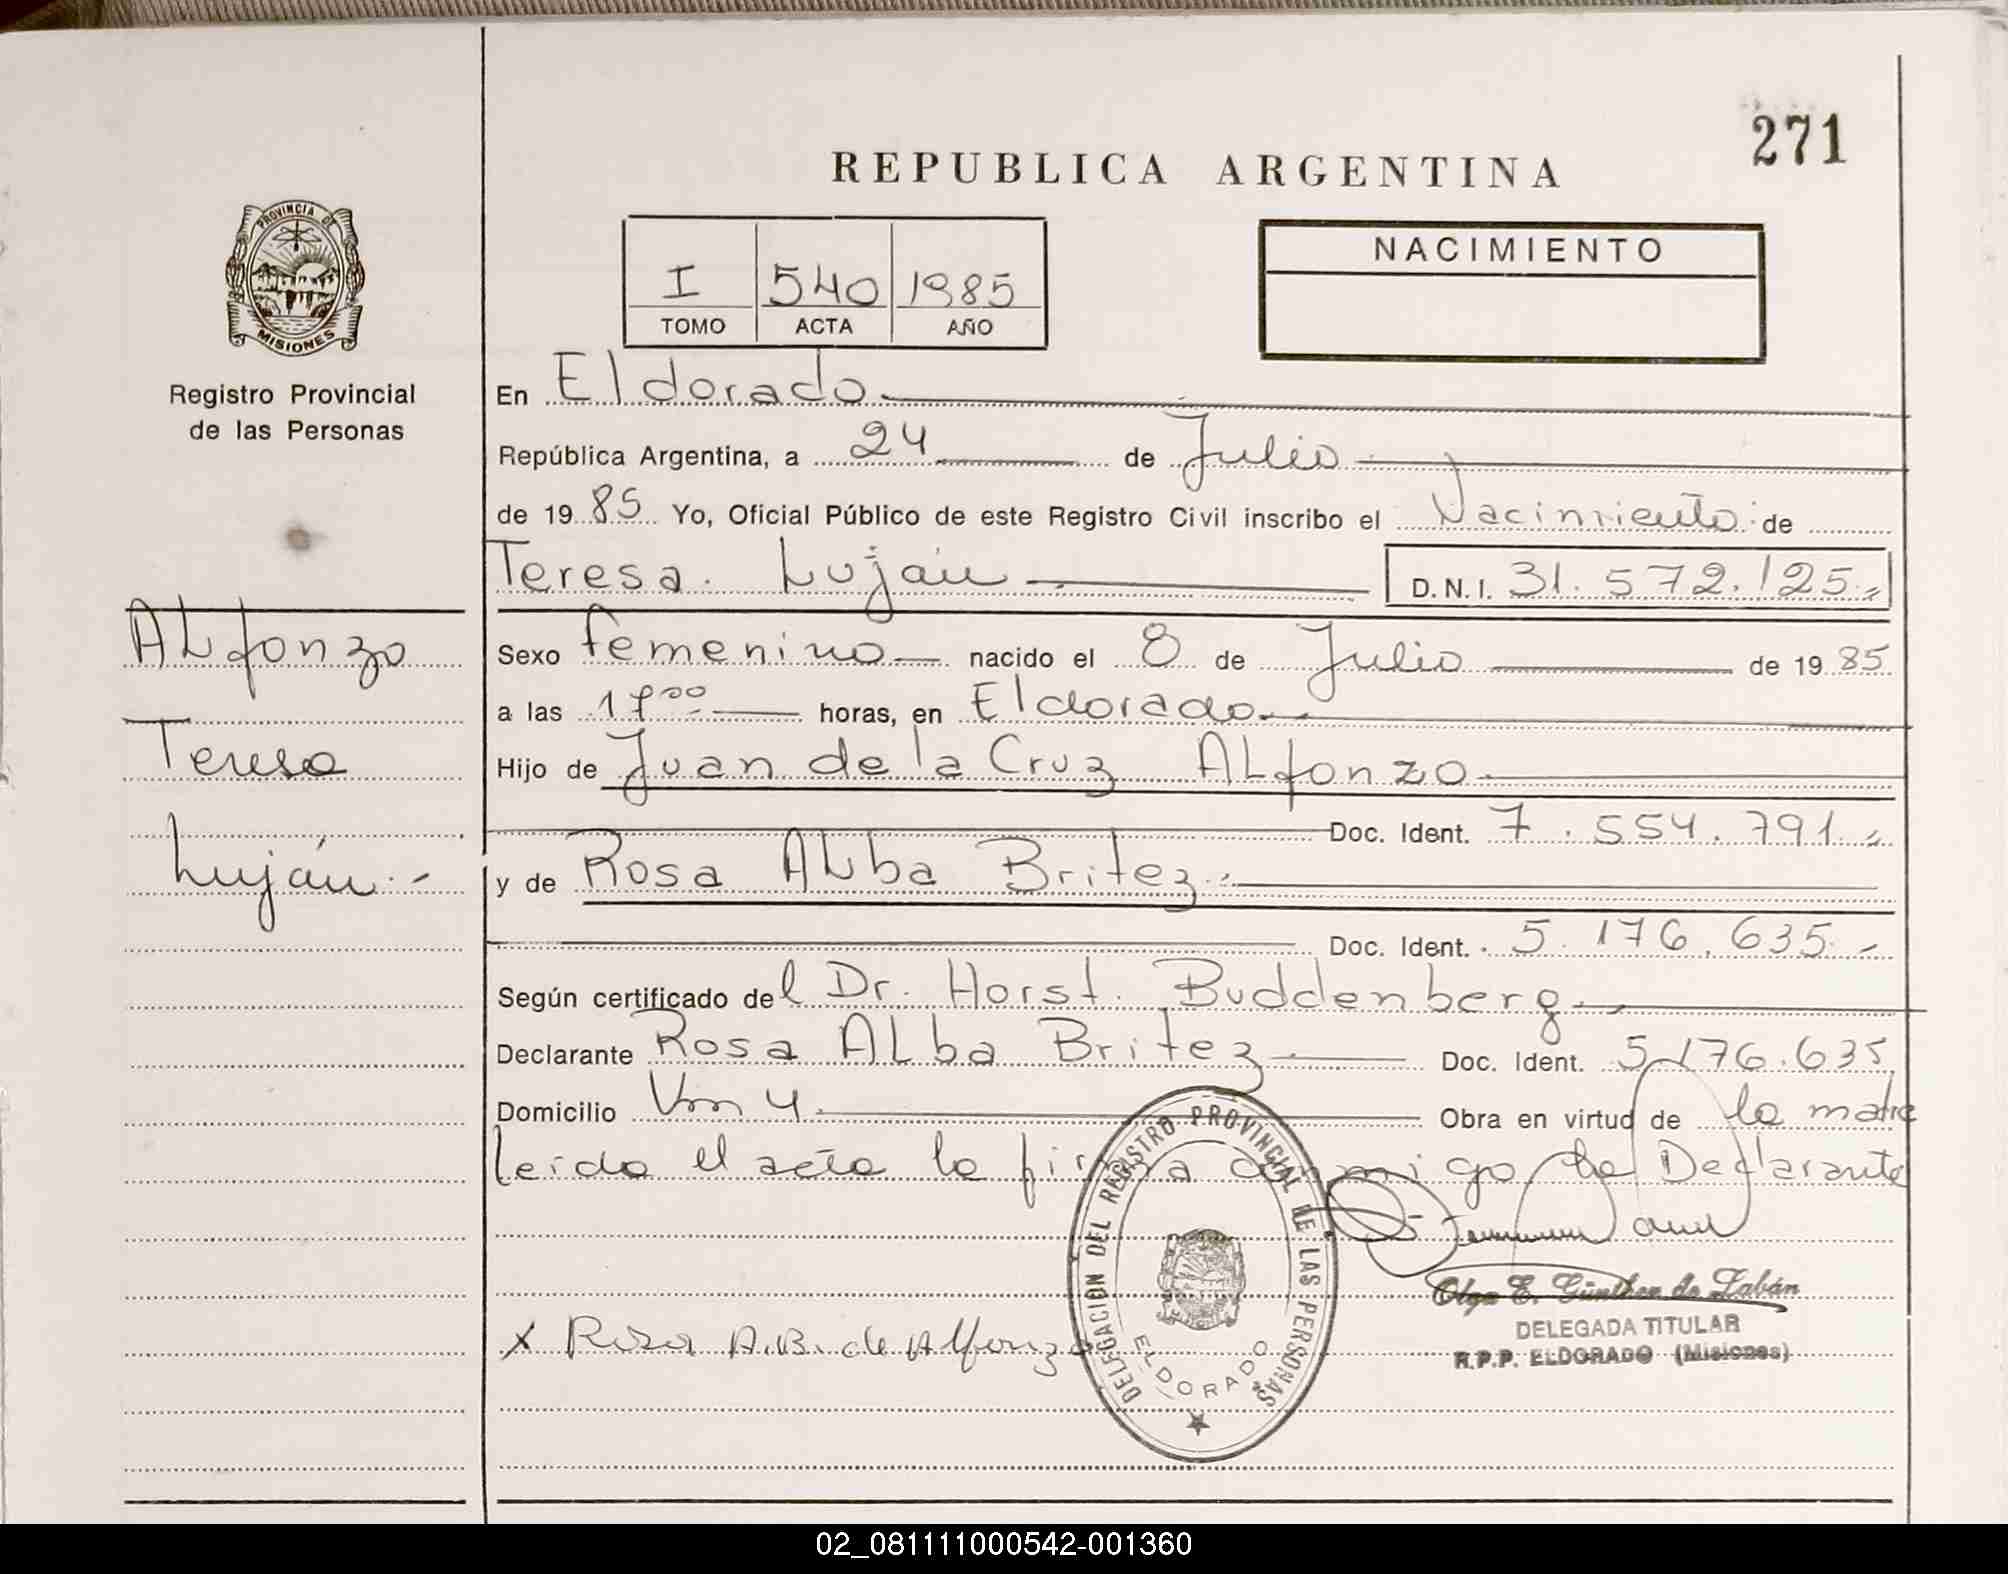 271
REPUBLICA ARGENTINA
PROVINCIA DE
MISIONES
Registro Provincial
de las Personas
I 540 1985
TOMO ACTA AÑO
NACIMIENTO
En Eldorado
República Argentina, a 24 de Julio
de 1985 Yo, Oficial Público de este Registro Civil inscribo el Nacimiento de
Teresa Luján D.N.I. 31.572.125
Sexo femenino nacido el 8 de Julio de 1985
a las 17 00 horas, en Eldorado
Hijo de Juan de la Cruz ALfonzo
Doc. Ident. 7.554.791
y de Rosa ALba Britez
Doc. Ident. 5.176.635
Según certificado del Dr. Horst Buddenberg
Declarante Rosa ALba Britez Doc. Ident. 5.176.635
Domicilio Km 4 Obra en virtud de la madre
Leída el acta la firma conmigo la Declarante
ALfonzo
Teresa
Luján
X Rosa A.B. de Alfonzo
DELEGACION DEL REGISTRO PROVINCIAL DE LAS PERSONAS
ELDORADO
Olga E. Günther de Zabán
DELEGADA TITULAR
R.P.P. ELDORADO (Misiones)
02_081111000542-001360